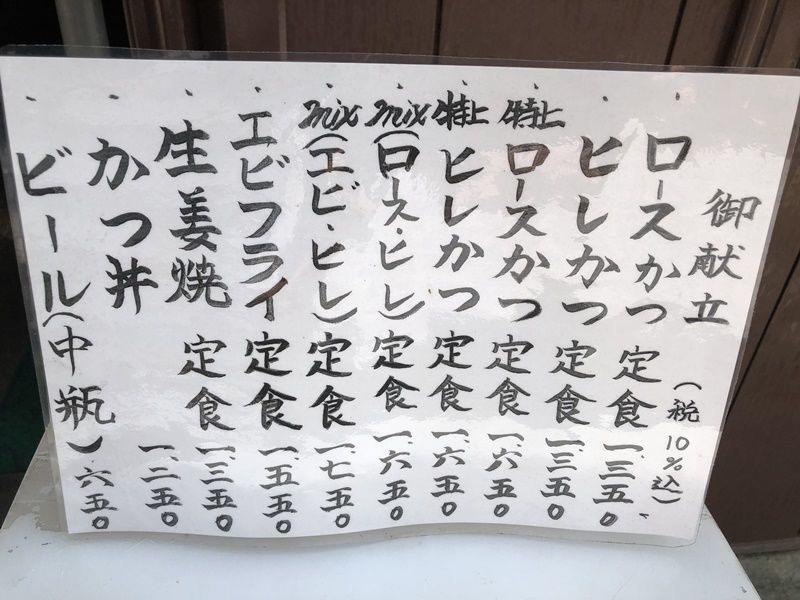 御献立 (税10%込)
ロースかつ定食 一、三五〇
ヒレかつ定食 一、三五〇
特上ロースかつ定食 一、六五〇
特上ヒレかつ定食 一、六五〇
mix(ロース・ヒレ)定食 一、六五〇
mix(エビ・ヒレ)定食 一、七五〇
エビフライ定食 一、五五〇
生姜焼定食 一、三五〇
かつ丼 一、二五〇
ビール(中瓶) 六五〇